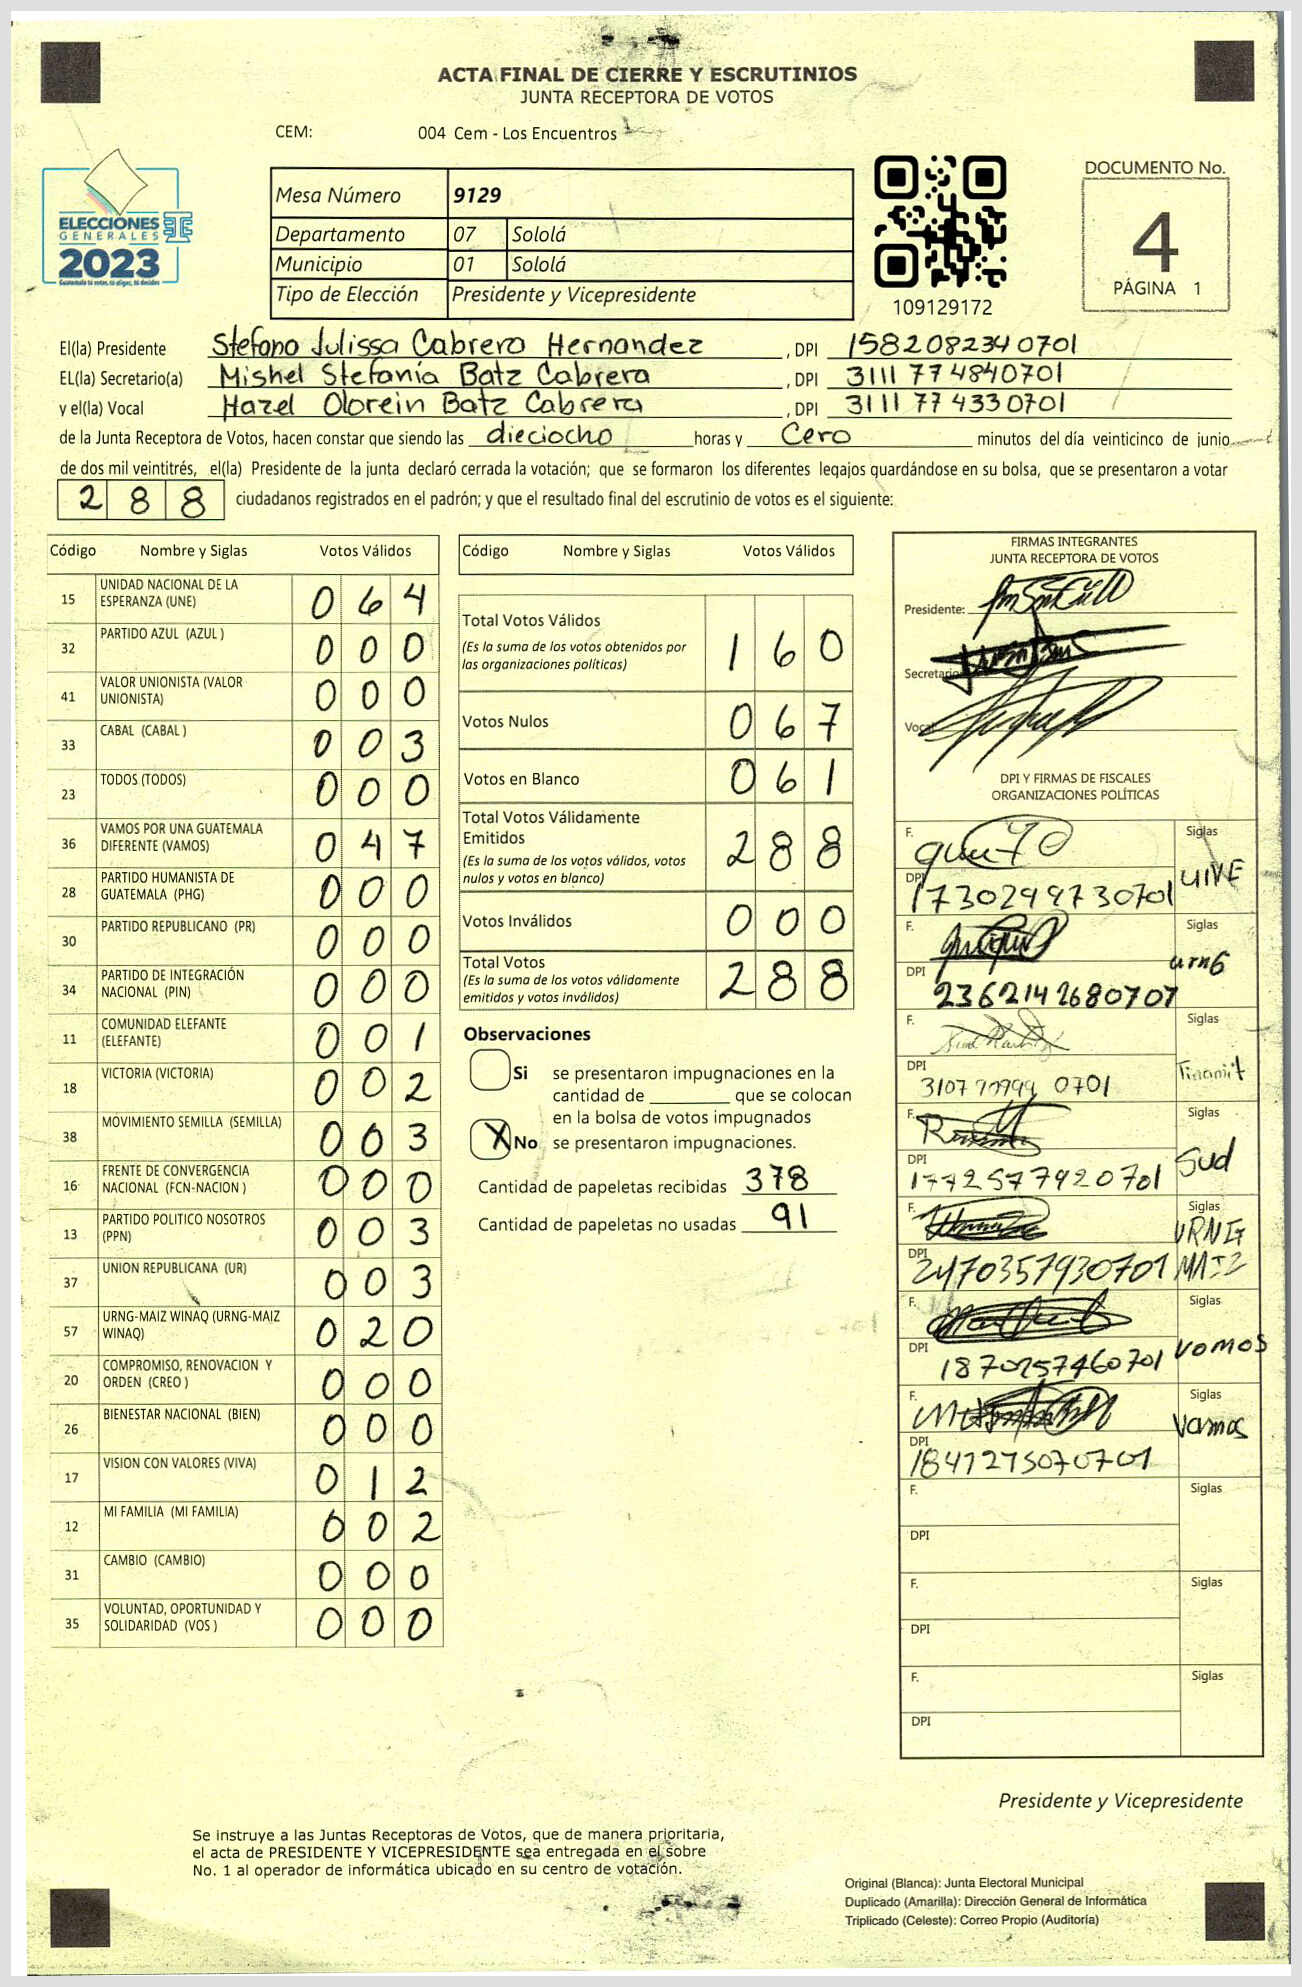 ACTA FINAL DE CIERRE Y ESCRUTINIOS
JUNTA RECEPTORA DE VOTOS
CEM: 004 Cem - Los Encuentros
ELECCIONES
GENERALES
2023
Guatemala tú votas, tú eliges, tú decides
Mesa Número 9129
Departamento 07 Sololá
Municipio 01 Sololá
Tipo de Elección Presidente y Vicepresidente
109129172
DOCUMENTO No.
4
PÁGINA 1
El(la) Presidente Stefano Julissa Cabrera Hernandez, DPI 1582082340701
EL(la) Secretario(a) Mishel Stefanía Batz Cabrera, DPI 3111774840701
y el(la) Vocal Hazel Olorein Batz Cabrera, DPI 3111774330701
de la Junta Receptora de Votos, hacen constar que siendo las dieciocho horas y Cero minutos del día veinticinco de junio
de dos mil veintitrés, el(la) Presidente de la junta declaró cerrada la votación; que se formaron los diferentes legajos guardándose en su bolsa, que se presentaron a votar
288 ciudadanos registrados en el padrón; y que el resultado final del escrutinio de votos es el siguiente:
Código Nombre y Siglas Votos Válidos
15 UNIDAD NACIONAL DE LA ESPERANZA (UNE) 064
32 PARTIDO AZUL (AZUL ) 000
41 VALOR UNIONISTA (VALOR UNIONISTA) 000
33 CABAL (CABAL ) 003
23 TODOS (TODOS) 000
36 VAMOS POR UNA GUATEMALA DIFERENTE (VAMOS) 047
28 PARTIDO HUMANISTA DE GUATEMALA (PHG) 000
30 PARTIDO REPUBLICANO (PR) 000
34 PARTIDO DE INTEGRACIÓN NACIONAL (PIN) 000
11 COMUNIDAD ELEFANTE (ELEFANTE) 001
18 VICTORIA (VICTORIA) 002
38 MOVIMIENTO SEMILLA (SEMILLA) 003
16 FRENTE DE CONVERGENCIA NACIONAL (FCN-NACION ) 000
13 PARTIDO POLITICO NOSOTROS (PPN) 003
37 UNION REPUBLICANA (UR) 003
57 URNG-MAIZ WINAQ (URNG-MAIZ WINAQ) 020
20 COMPROMISO, RENOVACION Y ORDEN (CREO ) 000
26 BIENESTAR NACIONAL (BIEN) 000
17 VISION CON VALORES (VIVA) 012
12 MI FAMILIA (MI FAMILIA) 002
31 CAMBIO (CAMBIO) 000
35 VOLUNTAD, OPORTUNIDAD Y SOLIDARIDAD (VOS ) 000
Código Nombre y Siglas Votos Válidos
Total Votos Válidos 160
(Es la suma de los votos obtenidos por
las organizaciones políticas)
Votos Nulos 067
Votos en Blanco 061
Total Votos Válidamente
Emitidos 288
(Es la suma de los votos válidos, votos
nulos y votos en blanco)
Votos Inválidos 000
Total Votos 288
(Es la suma de los votos válidamente
emitidos y votos inválidos)
Observaciones
Si se presentaron impugnaciones en la
cantidad de ________ que se colocan
en la bolsa de votos impugnados
X No se presentaron impugnaciones.
Cantidad de papeletas recibidas 378
Cantidad de papeletas no usadas 91
FIRMAS INTEGRANTES
JUNTA RECEPTORA DE VOTOS
Presidente:
Secretario
Vocal
DPI Y FIRMAS DE FISCALES
ORGANIZACIONES POLÍTICAS
F. Siglas
DPI 1730299730701 UNE
F. Siglas
DPI 2362142680707 urng
F. Siglas
DPI 0701
F. Siglas
DPI 1772577920701 Sud
F. Siglas
DPI 2470357930701 URNG MAIZ
F. Siglas
DPI 1870257460701 vamos
F. Siglas
DPI 1847275070701 Vamos
F. Siglas
DPI
F. Siglas
DPI
F. Siglas
DPI
Presidente y Vicepresidente
Se instruye a las Juntas Receptoras de Votos, que de manera prioritaria,
el acta de PRESIDENTE Y VICEPRESIDENTE sea entregada en el sobre
No. 1 al operador de informática ubicado en su centro de votación.
Original (Blanca): Junta Electoral Municipal
Duplicado (Amarilla): Dirección General de Informática
Triplicado (Celeste): Correo Propio (Auditoría)